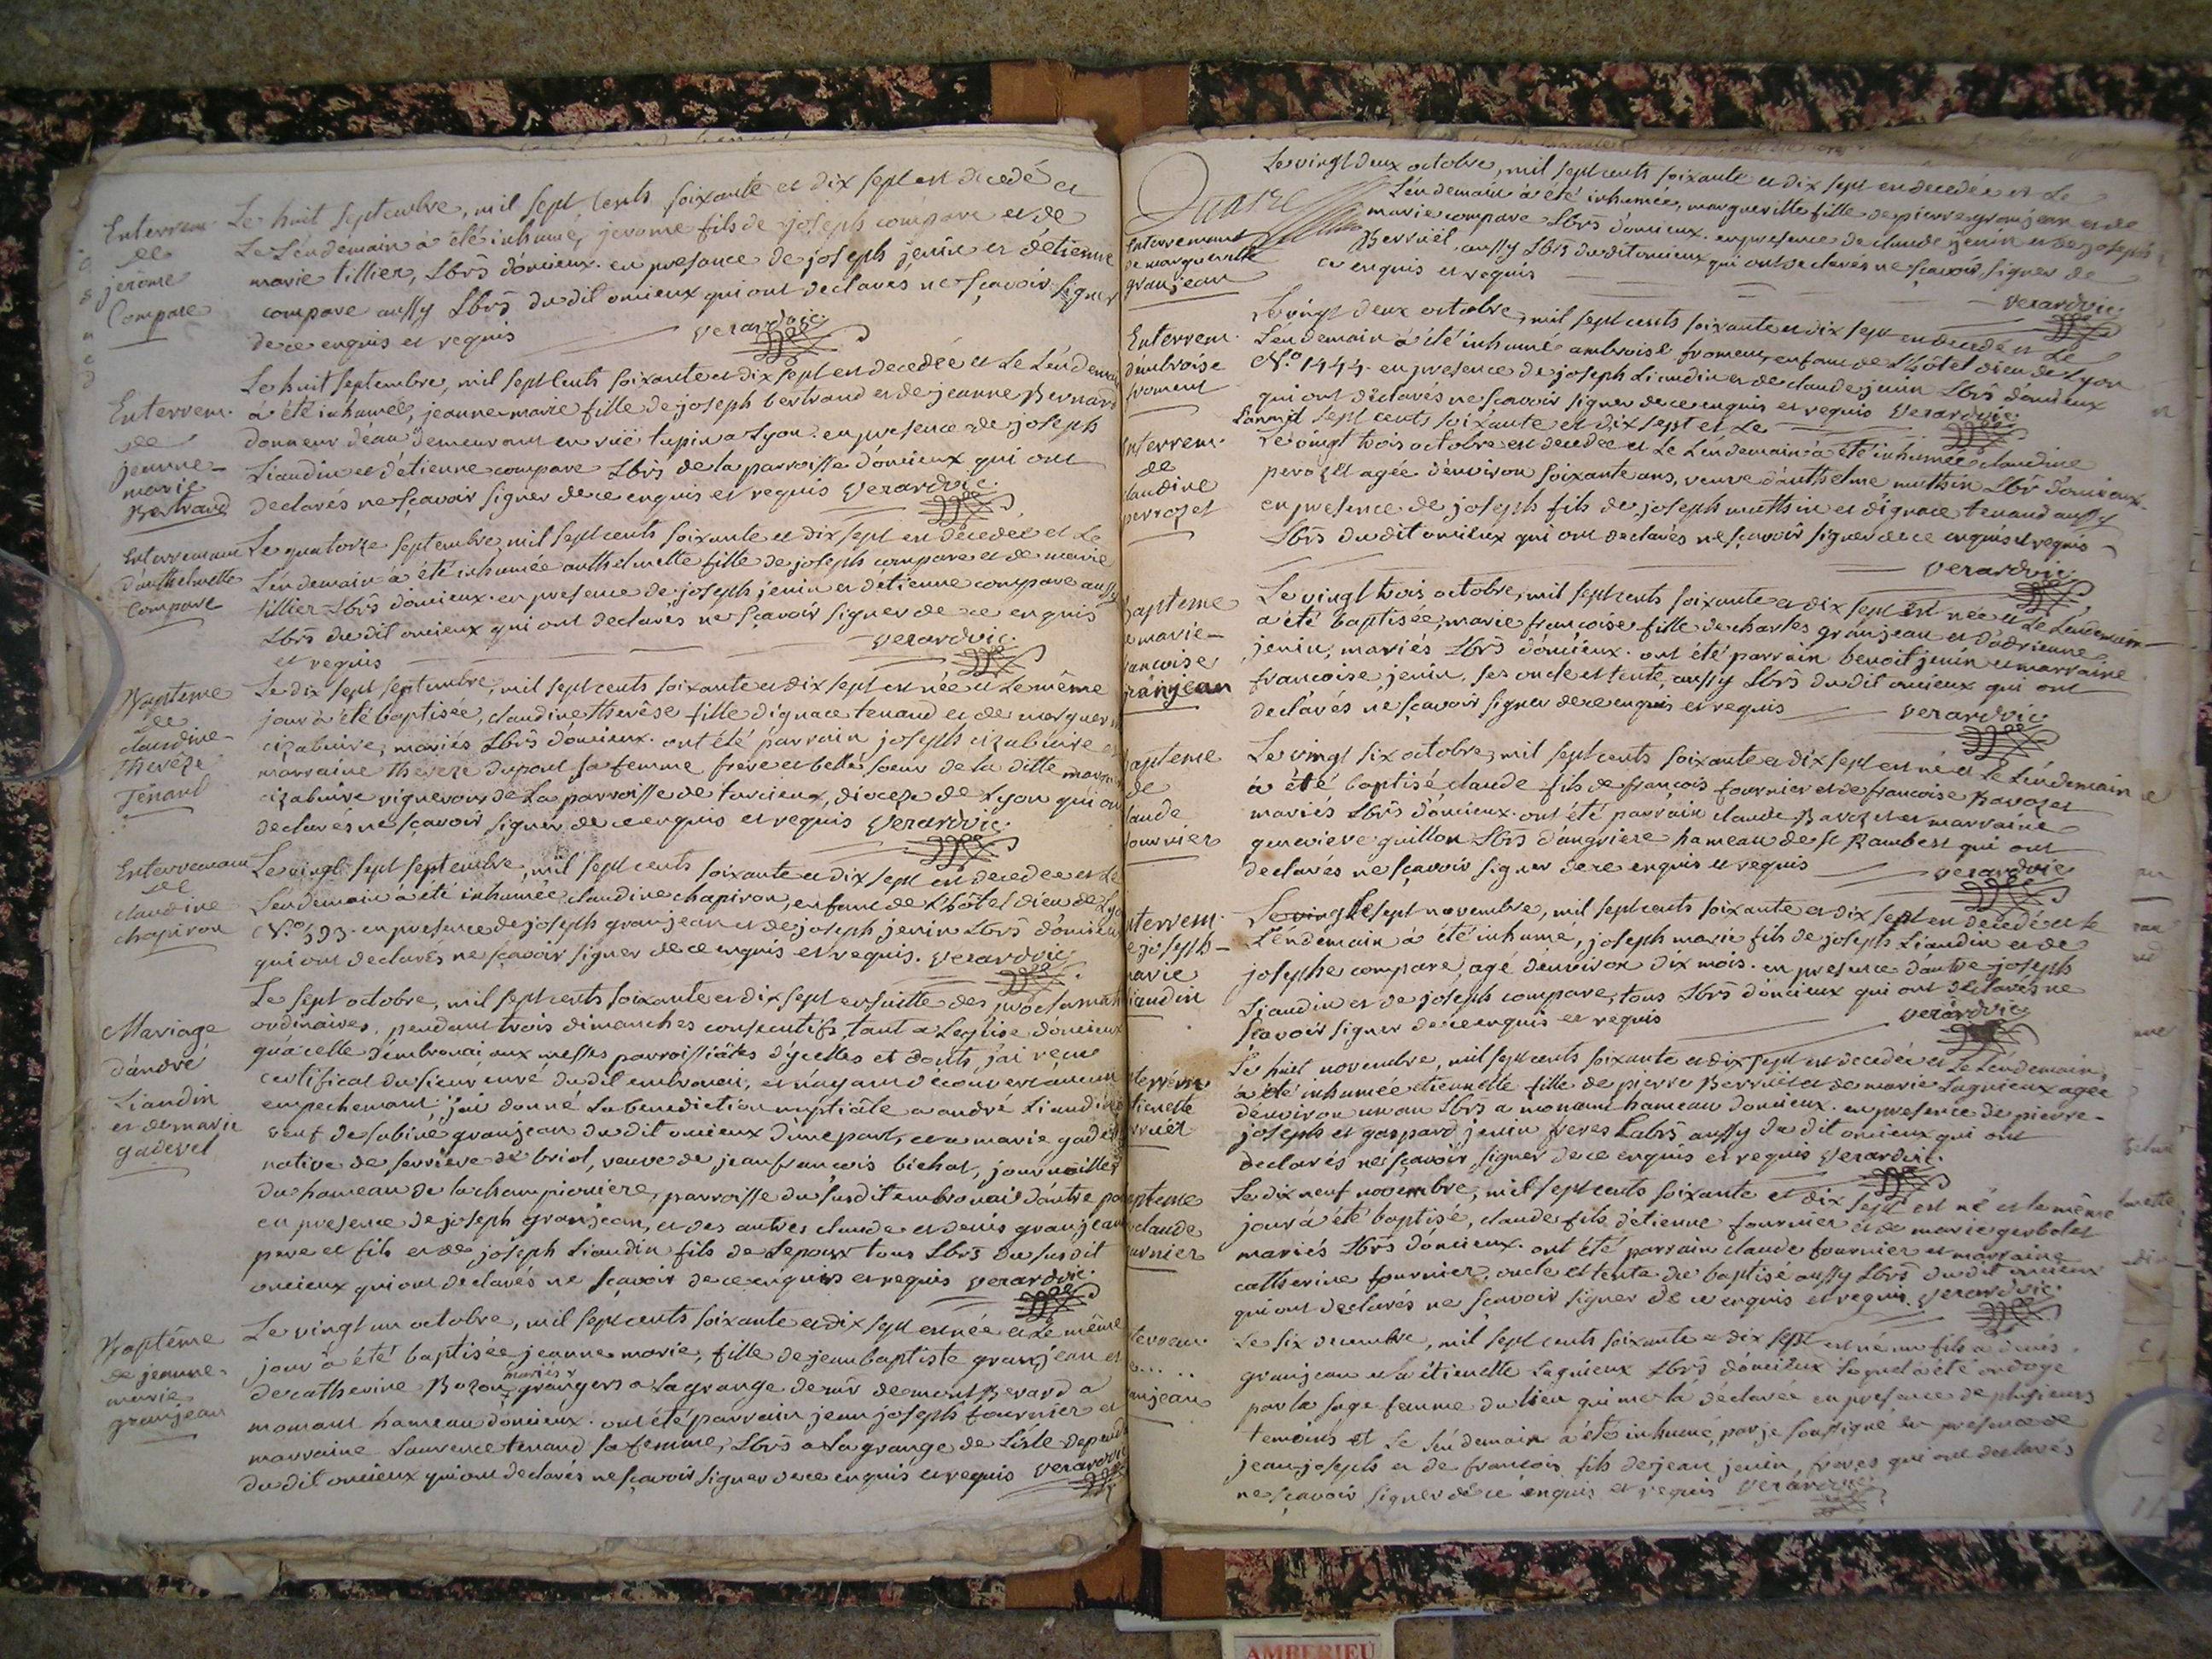 Enterrem.
de
jerome
Compare
Le huit septembre, mil sept cents soixante et dix sept est decedé et
Le Lendemain à été inhumé, jerome fils de joseph compare et de
marie tillier, Lbrs doncieux. en presance de joseph jenin et détienne
compare aussy Lbrs du dit oncieux qui ont declarés ne sçavoir signer
de ce enquis et requis verardvic.
Enterrem.
de
jeanne-
marie
Bertrand
Le huit septembre, mil sept Cents soixante et dix sept est decedée et Le Lendemain
à été inhumée, jeanne marie fille de joseph bertrand et de jeanne Bernard
donneur déau demeurant en ruë tupin a Lyon. en presence de joseph
Liaudin et détienne compare Lbrs de la parroisse doncieux qui ont
declarés ne sçavoir signer de ce enquis et requis verardvic.
Enterrement
danthelmette
Compare
Le quatorze septembre, mil sept cents soixante et dix sept est decedée et Le
Lendemain à été inhumée anthelmette fille de joseph compare et de marie
tillier Lbrs doncieux. en presence de joseph jenin et detienne compare aussy
Lbrs du dit oncieux qui ont declarés ne sçavoir signer de ce enquis
et requis verardvic.
Bapteme
de
claudine
Thereze
Tenand
Le dix sept septembre, mil sept cents soixante et dix sept est née et Le même
jour à été baptisée, claudine therêse fille dignace tenand et de marguer
cizabuire, mariés Lbrs doncieux. ont été parrain joseph cizabuire et
marraine thereze dupont sa femme frere et belle soeur de la ditte
cizabuire vignerons de La parroisse de turcieux, dioceze de Lyon qui ont
declarés ne sçavoir signer de ce enquis et requis verardvic.
Enterrement
de
claudine
chapiron
Le vingt sept septembre, mil sept cents soixante et dix sept est decedée et Le
Lendemain à été inhumée, claudine chapiron, enfant de L'hôtel dieu de Lyon
N.° 393. en presence de joseph granjean et de joseph jenin Lbrs doncieux
qui ont declarés ne sçavoir signer de ce enquis et requis. verardvic
Mariage
dandré
Liaudin
et de marie
gadevel
Le sept octobre, mil sept cents soixante et dix sept ensuitte des proclamat
ordinaires, pendant trois dimanches consecutifs, tant a Leglise doncieux
qu'a celle d'embronai aux messes parroissiâles dycelles et donts jai reçue
certificat du sieur curé du dit embronai, et n'ayant decouvert aucun
empechement, jai donné La benediction nuptiâle a andré Liaudin
veuf de sabine granjean du dit oncieux dune part, et a marie gadevel
native de serriere de briot, veuve de jean françois bichat, journaillier
du hameau de la championiere, parroisse du susdit embronai dautre part
en presence de joseph granjean, et des autres claude et denis granjean
pere et fils et de joseph Liaudin fils de Lepoux tous Lbrs du susdit
oncieux qui ont declarés ne sçavoir de ce enquis et requis verardvic.
Baptême
de jeanne
marie
granjean
Le vingt un octobre, mil sept cents soixante et dix sept est née et Le même
jour à été baptisée jeanne marie, fille de jean baptiste granjean et
mariés
de catherine Bozon grangers a La grange de mr de mont Berard a
momant hameau doncieux. ont été parrain jean joseph fournier et
marraine Laurence tenand sa femme, Lbrs a La grange de Lisle
du dit oncieux qui ont declarés ne sçavoir signer de ce enquis et requis verardvic
Quatre
Enterrement
de marguerite
granjean
Le vingt deux octobre, mil sept cents soixante et dix sept est decedée et Le
Lendemain à été inhumée, marguerite fille de pierre granjean et de
marie compare Lbrs doncieux. en presence de claude jenin et de joseph
Berruët, aussy Lbrs du dit oncieux qui ont declarés ne sçavoir signer de
ce enquis et requis verardvic
Enterrem.
dembroise
froment
Le vingt deux octobre, mil sept cents soixante et dix sept est decedé et Le
Lendemain à été inhumé ambroise froment, enfant de L'hôtel dieu de Lyon
N.° 1444. en presence de joseph Liaudin et de claude jenin Lbrs doncieux
qui ont déclarés ne sçavoir signer de ce enquis et requis verardvic
Enterrem.
de
claudine
perrozet
Lan mil sept cents soixante et dix sept et Le
Le vingt trois octobre est decedée et Le Lendemain à été inhumée claudine
perozet agée denviron soixante ans, veuve danthelme muthin Lbr doncieux.
en presence de joseph fils de joseph muthin et dignace tenand aussy
Lbrs du dit oncieux qui ont declarés ne sçavoir signer de ce enquis et requis
verardvic
Bapteme
de marie-
francoise
granjean
Le vingt trois octobre, mil sept cents soixante et dix sept est née et Le Lendemain
a été baptisée, marie francoise fille de charles granjean et dadrienne
jenin, mariés Lbrs doncieux. ont été parrain benoit jenin et marraine
francoise jenin, ses oncle et tente, aussy Lbrs du dit oncieux qui ont
declarés ne sçavoir signer de ce enquis et requis verardvic
Bapteme
de
claude
fournier
Le vingt six octobre, mil sept cents soixante et dix sept est né et Le Lendemain
à été baptisé claude fils de francois fournier et de francoise Ravozet
mariés Lbrs doncieux. ont été parrain claude Ravozet et marraine
genevieve guillon Lbrs dangriere hameau de st Rambert qui ont
declarés ne sçavoir signer de ce enquis et requis verardvic
Enterrem.
de joseph-
marie
Liaudin
Le vingt Le sept novembre, mil sept cents soixante et dix sept est decedé et Le
Lendemain à été inhumé, joseph marie fils de joseph Liaudin et de
josephe compare, agé denviron dix mois. en presence dautre joseph
Liaudin et de joseph compare, tous Lbrs doncieux qui ont declarés ne
sçavoir signer de ce enquis et requis verardvic
Enterrem
etiennette
berruet
Le huit novembre, mil sept cents soixante et dix sept est decedée et Le Lendemain
à été inhumée etiennette fille de pierre Berruet et de marie Lagnieux agée
denviron un an Lbrs a momant hameau doncieux. en presence de pierre-
joseph et gaspard jenin freres Labrs aussy du dit oncieux qui ont
declarés ne sçavoir signer de ce enquis et requis verardvic.
Bapteme
de claude
fournier
Le dix neuf novembre, mil sept cents soixante et dix sept est né et le même
jour à été baptisé, claude fils détienne fournier et de marie gerbolet
mariés Lbrs doncieux. ont été parrain claude fournier et marraine
catherine fournier, oncle et tente du baptisé aussy Lbrs du dit oncieux
qui ont declarés ne sçavoir signer de ce enquis et requis. verardvic.
granjean
Le six decembre, mil sept cents soixante et dix sept est né un fils a denis
granjean et a étiennette Lagnieux Lbrs doncieux Lequel a été ondoyé
par la sage femme du lieu qui me la declaré en presence de plusieurs
temoins et Le Lendemain à été inhumé, par je soussigné en presence de
jean joseph et de francois fils de jean jenin, freres qui ont declarés
ne sçavoir signer de ce enquis et requis verardvic
AMBERIEU